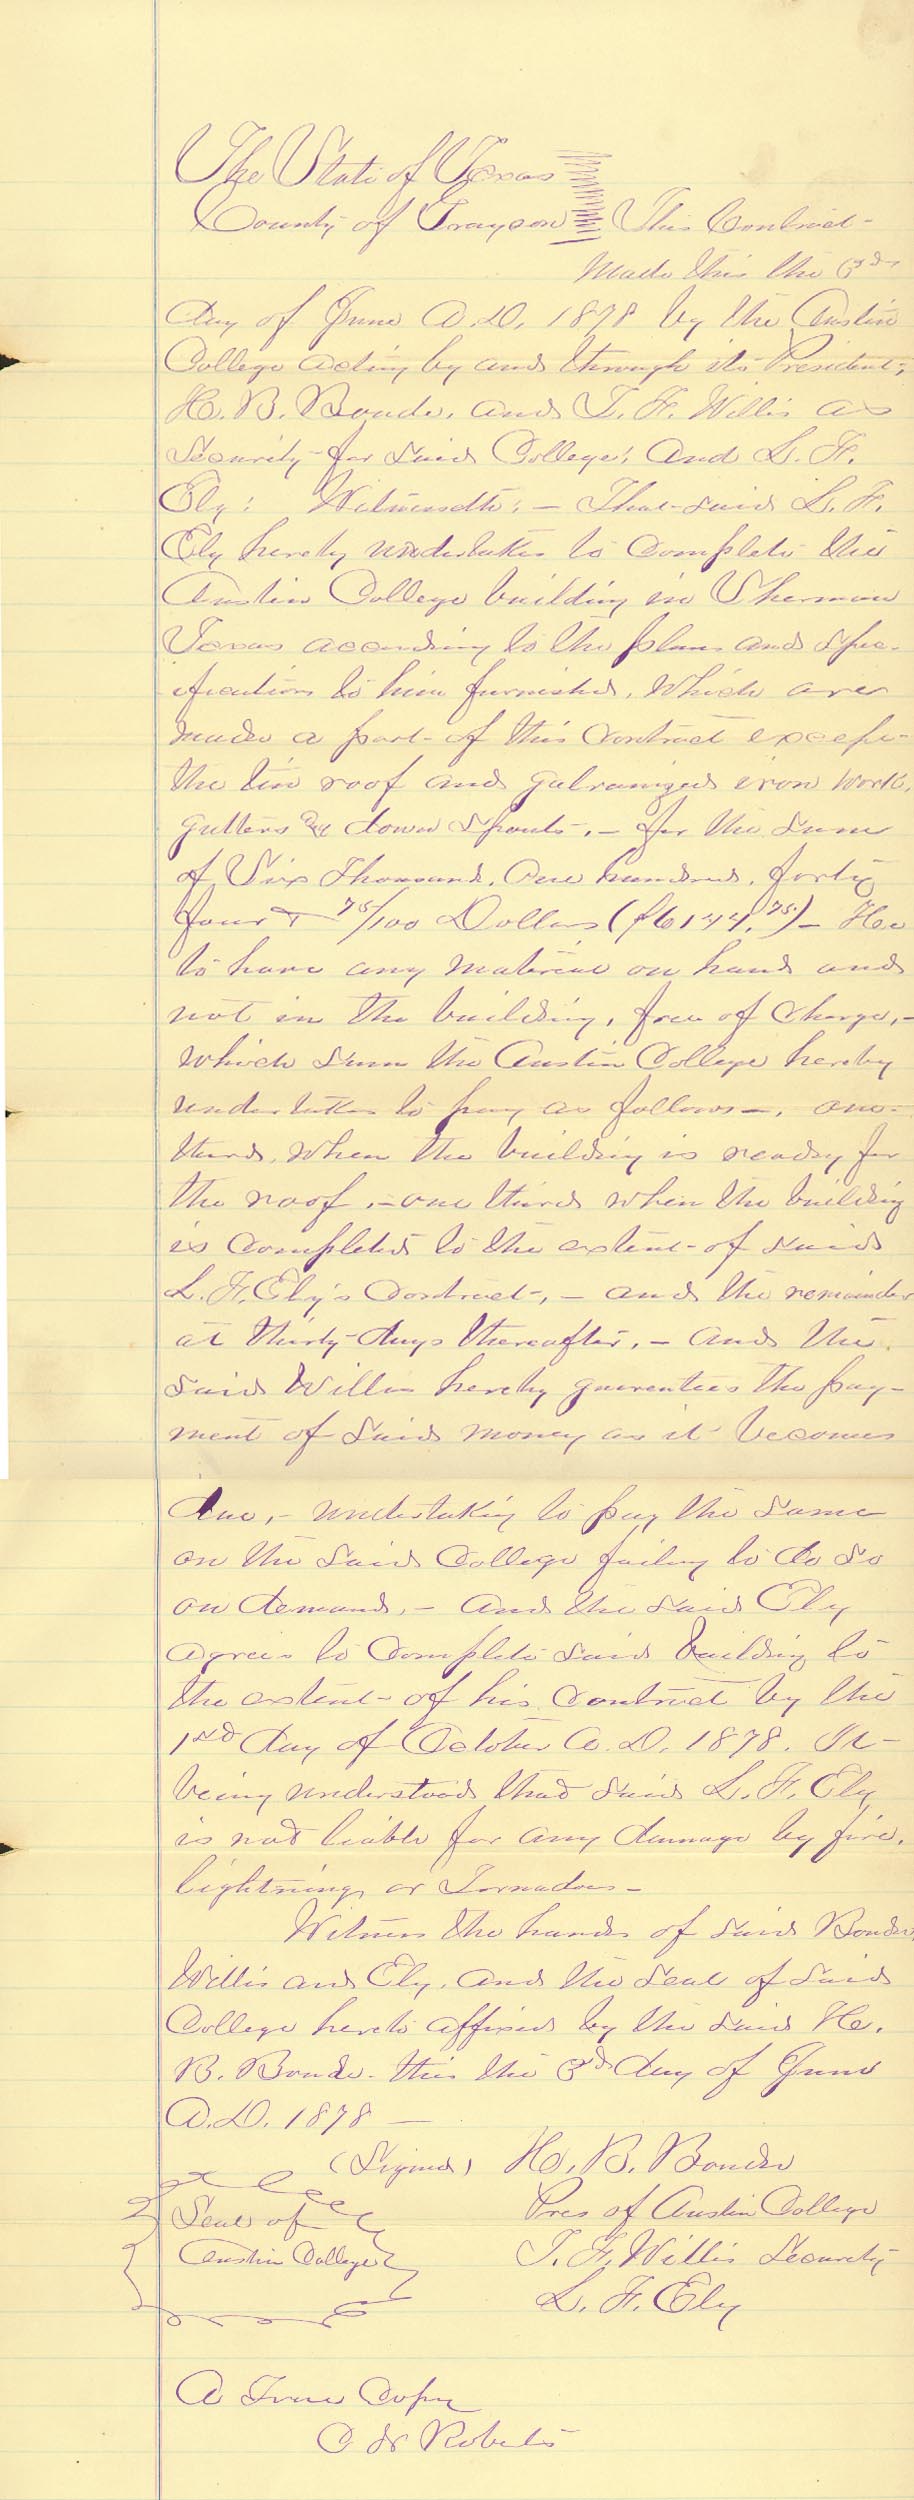 The State of Texas
County of Grayson } This Contract
Made this the 3rd
day of June A.D. 1878 by the Austin
College acting by and through its President,
H. B. Boude, and T. F. Willis as
Security for said College, and L. F.
Ely: Witnesseth: – That said L. F.
Ely hereby undertakes to complete the
Austin College building in Sherman
Texas according to the plans and spec-
ifications to him furnished, which are
made a part of this Contract except
the tin roof and galvanized iron work,
gutters & down spouts, – for the sum
of Six Thousand, One hundred, forty
four + 75/100 Dollars ($6144.75) – He
to have any material on hand and
not in the building, free of charge, –
which sum the Austin College hereby
undertakes to pay as follows –, one-
third, when the building is ready for
the roof, – one third when the building
is completed to the extent of said
L. F. Ely's Contract, – and the remainder
at thirty days thereafter, – and the
said Willis hereby guarentees the pay-
ment of said money as it becomes
due, – undertaking to pay the same
on the said College failing to do so
on demand, – And the said Ely
agrees to complete said building to
the extent of his Contract by the
1st day of October A.D. 1878. It
being understood that said L. F. Ely
is not liable for any damage by fire,
lightning, or Tornadoes –
Witness the hands of said Boude,
Willis and Ely, and the seal of said
College hereto affixed by the said H.
B. Boude. this the 3rd day of June
A.D. 1878 –
(Signed) H. B. Boude
Pres of Austin College
Seal of
Austin College
T. F. Willis Security
L. F. Ely
A True Copy
Roberts